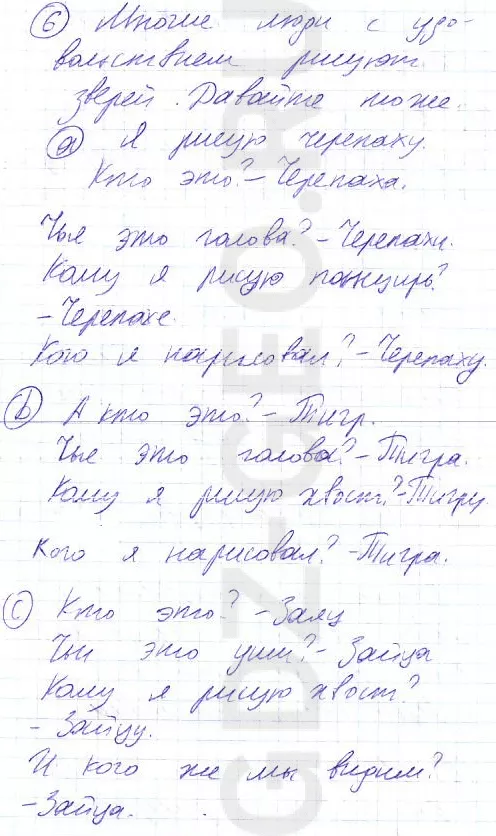 6 Многие люди с удо-
вольствием рисуют
зверей. Давайте тоже.
a Я рисую черепаху.
Кто это? – Черепаха.
Чья это голова? – Черепахи.
Кому я рисую панцирь?
– Черепахе.
Кого я нарисовал? – Черепаху.
b А кто это? – Тигр.
Чья это голова? – Тигра.
Кому я рисую хвост? – Тигру.
Кого я нарисовал? – Тигра.
c Кто это? – Заяц
Чьи это уши? – Зайца
Кому я рисую хвост?
– Зайцу.
И кого же мы видим?
– Зайца.
GDZ-GEO.RU